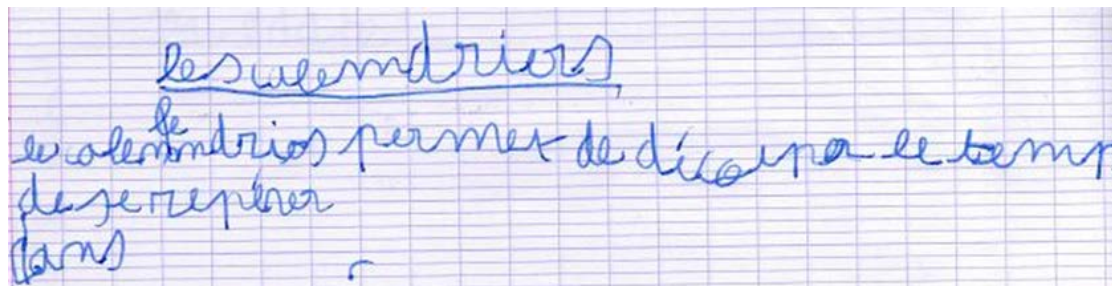 les calemdriers
le
le calemmdrios permet de découpa le temp
de se repérer
dans